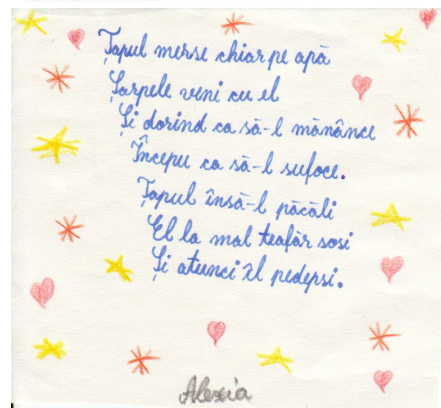 Țapul merse chiar pe apă
Șarpele veni cu el
Și dorind ca să-l mănânce
Începu ca să-l sufoce.
Țapul însă-l păcăli
El la mal teafăr sosi
Și atunci îl pedepsi.
Alexia